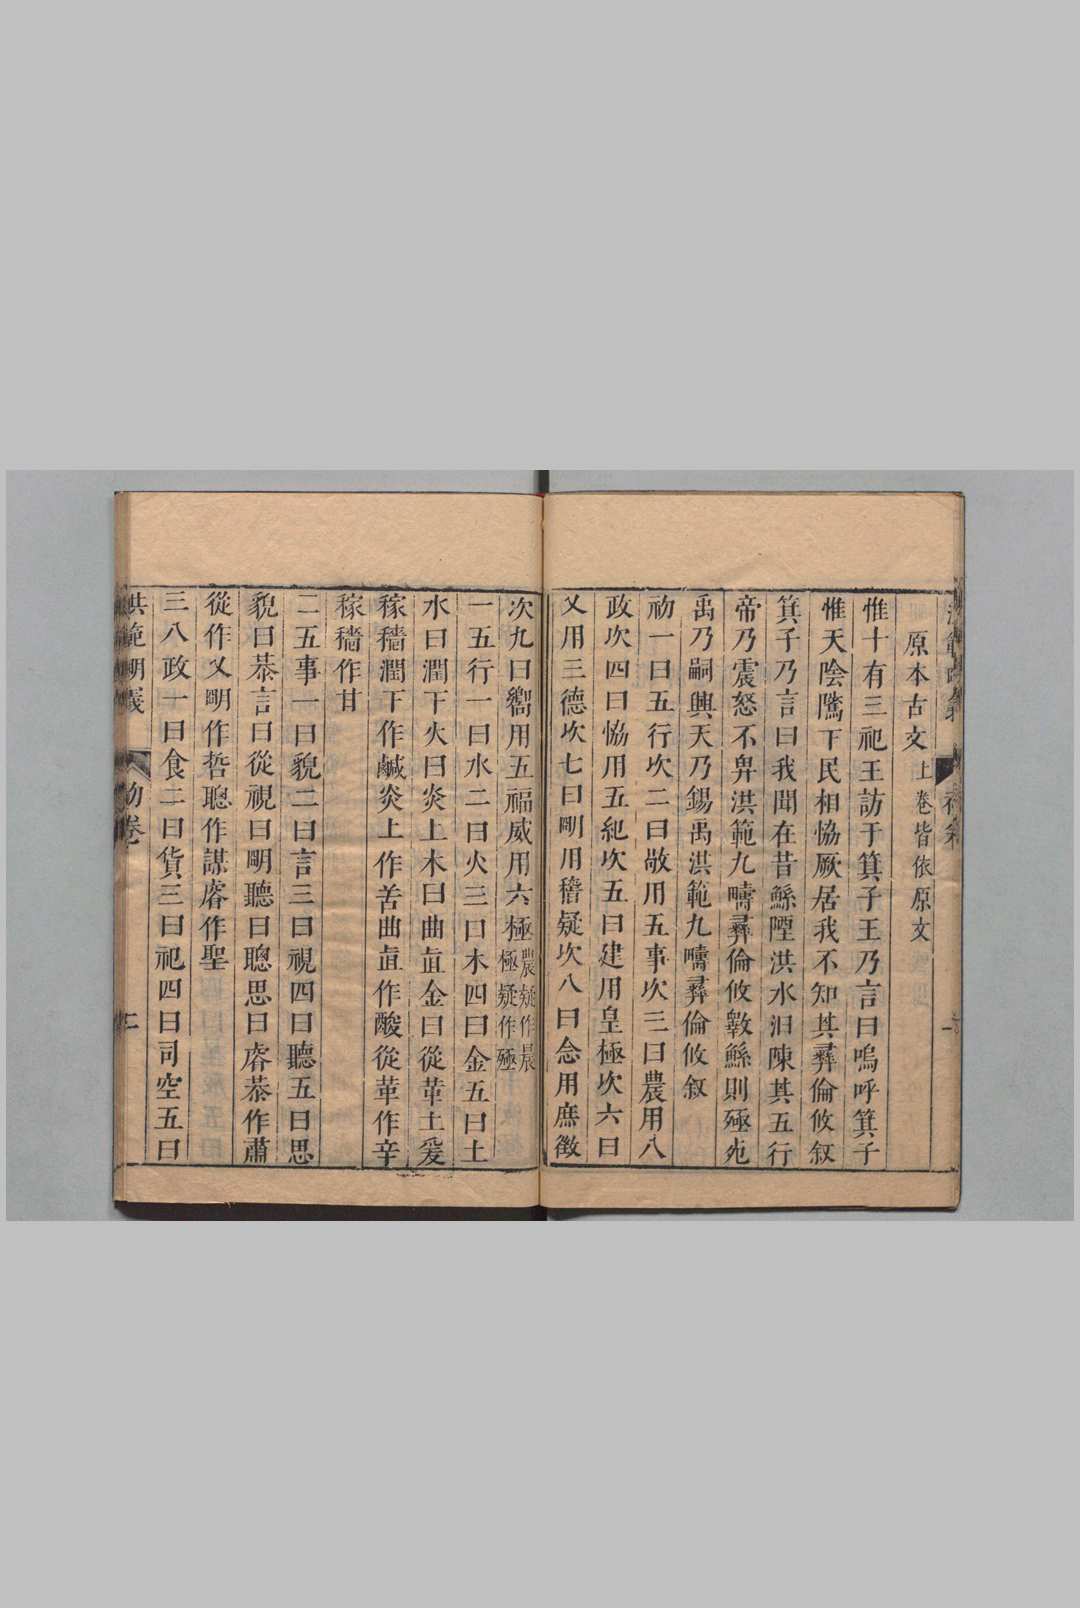 原本古文上卷皆依原文
惟十有三祀王訪于箕子王乃言曰嗚呼箕子
惟天陰隲下民相恊厥居我不知其彝倫攸叙
箕子乃言曰我聞在昔鯀陻洪水汨陳其五行
帝乃震怒不畀洪範九疇彝倫攸斁鯀則殛死
禹乃嗣興天乃錫禹洪範九疇彝倫攸叙
初一曰五行次二曰敬用五事次三曰農用八
政次四曰恊用五紀次五曰建用皇極次六曰
乂用三德次七曰明用稽疑次八曰念用庶徵
次九曰嚮用五福威用六極農疑作晨極疑作殛
一五行一曰水二曰火三曰木四曰金五曰土
水曰潤下火曰炎上木曰曲直金曰從革土爰
稼穡潤下作鹹炎上作苦曲直作酸從革作辛
稼穡作甘
二五事一曰貌二曰言三曰視四曰聽五曰思
貌曰恭言曰從視曰明聽曰聰思曰睿恭作肅
從作乂明作哲聰作謀睿作聖
三八政一曰食二曰貨三曰祀四曰司空五曰
洪範明義 初卷 二